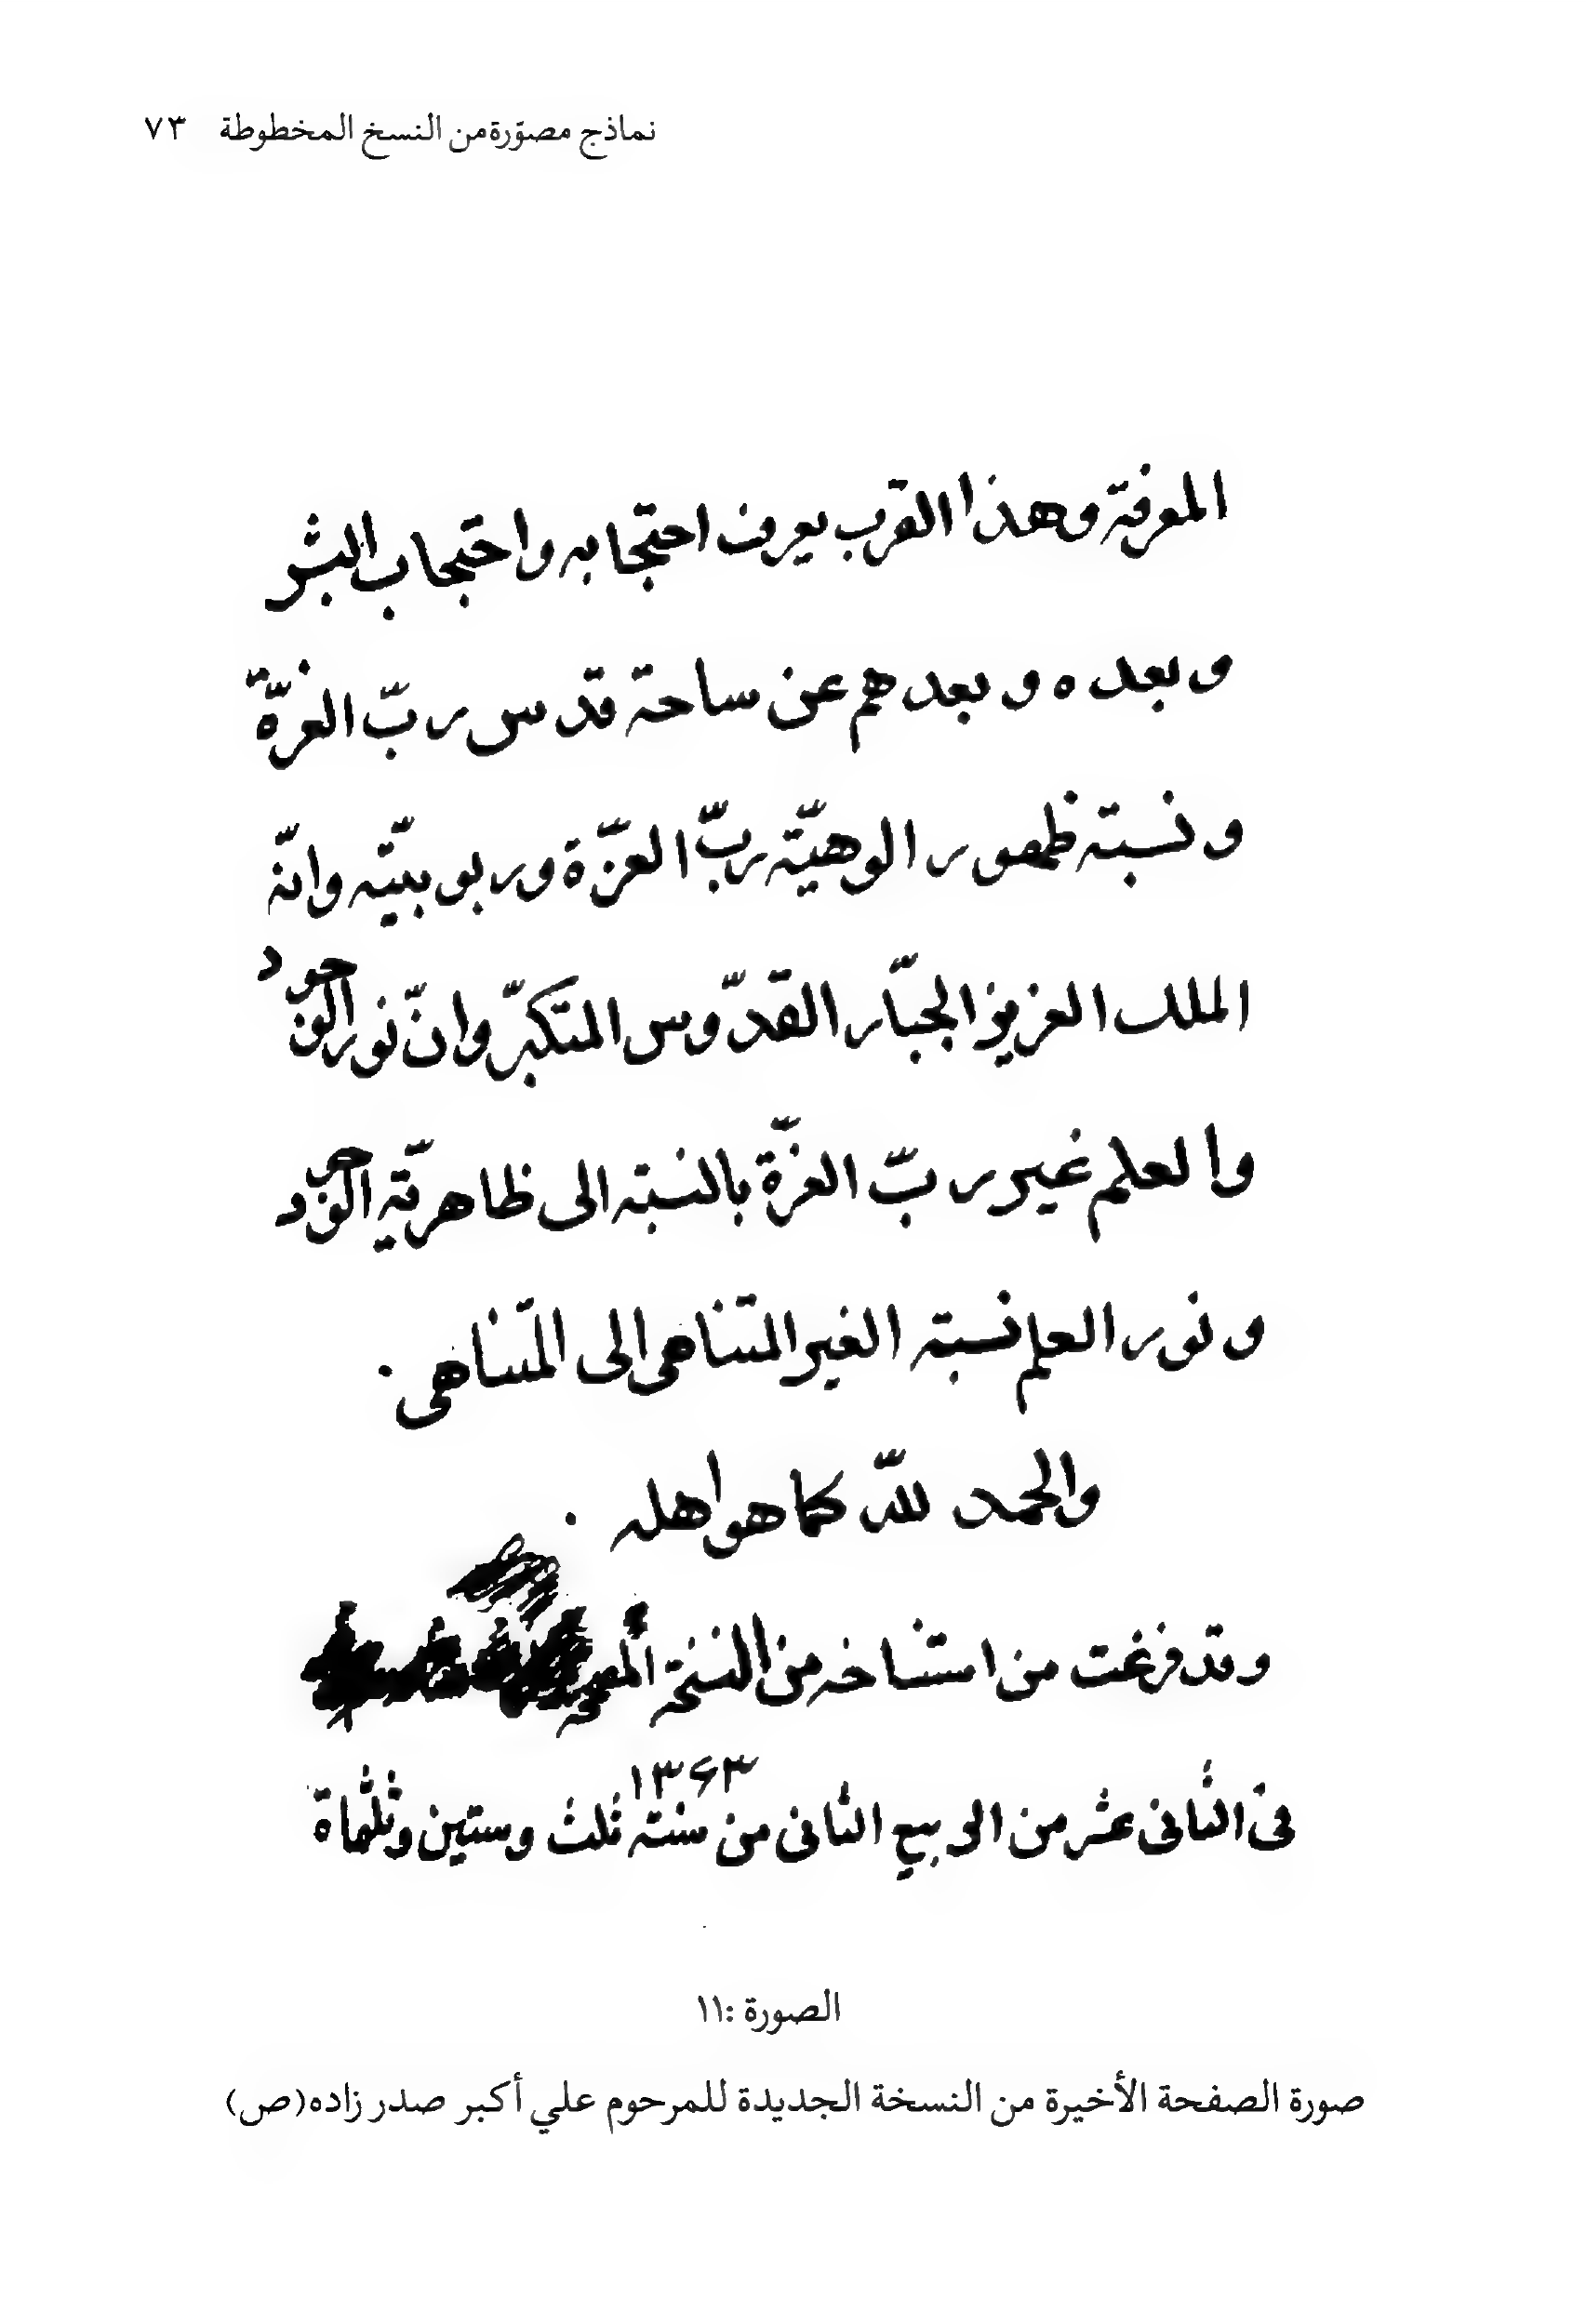 نماذج مصوّرة من النسخ المخطوطة ٧٣
المعرفة وهذا القرب يعرف احتجابه واحتجاب البشر
وبعده وبعدهم عن ساحة قدس ربّ العزّة
ونسبة ظهور الوهيّة ربّ العزّة وربوبيّته وانّه
الملك العزيز الجبّار القدّوس المتكبّر وانّ نور الوجود
والعلم غير ربّ العزّة بالنسبة الى ظاهريّة الوجود
ونور العلم نسبة الغير المتناهى الى المتناهى .
والحمد للّه كما هو اهله .
وقد فرغت من استنساخه من النسخة
١٣۶٣
فى الثانى عشر من الربيع الثانى من سنة ثلث وستين وثلثماة
الصورة :١١
صورة الصفحة الأخيرة من النسخة الجديدة للمرحوم علي أكبر صدر زاده(ص)